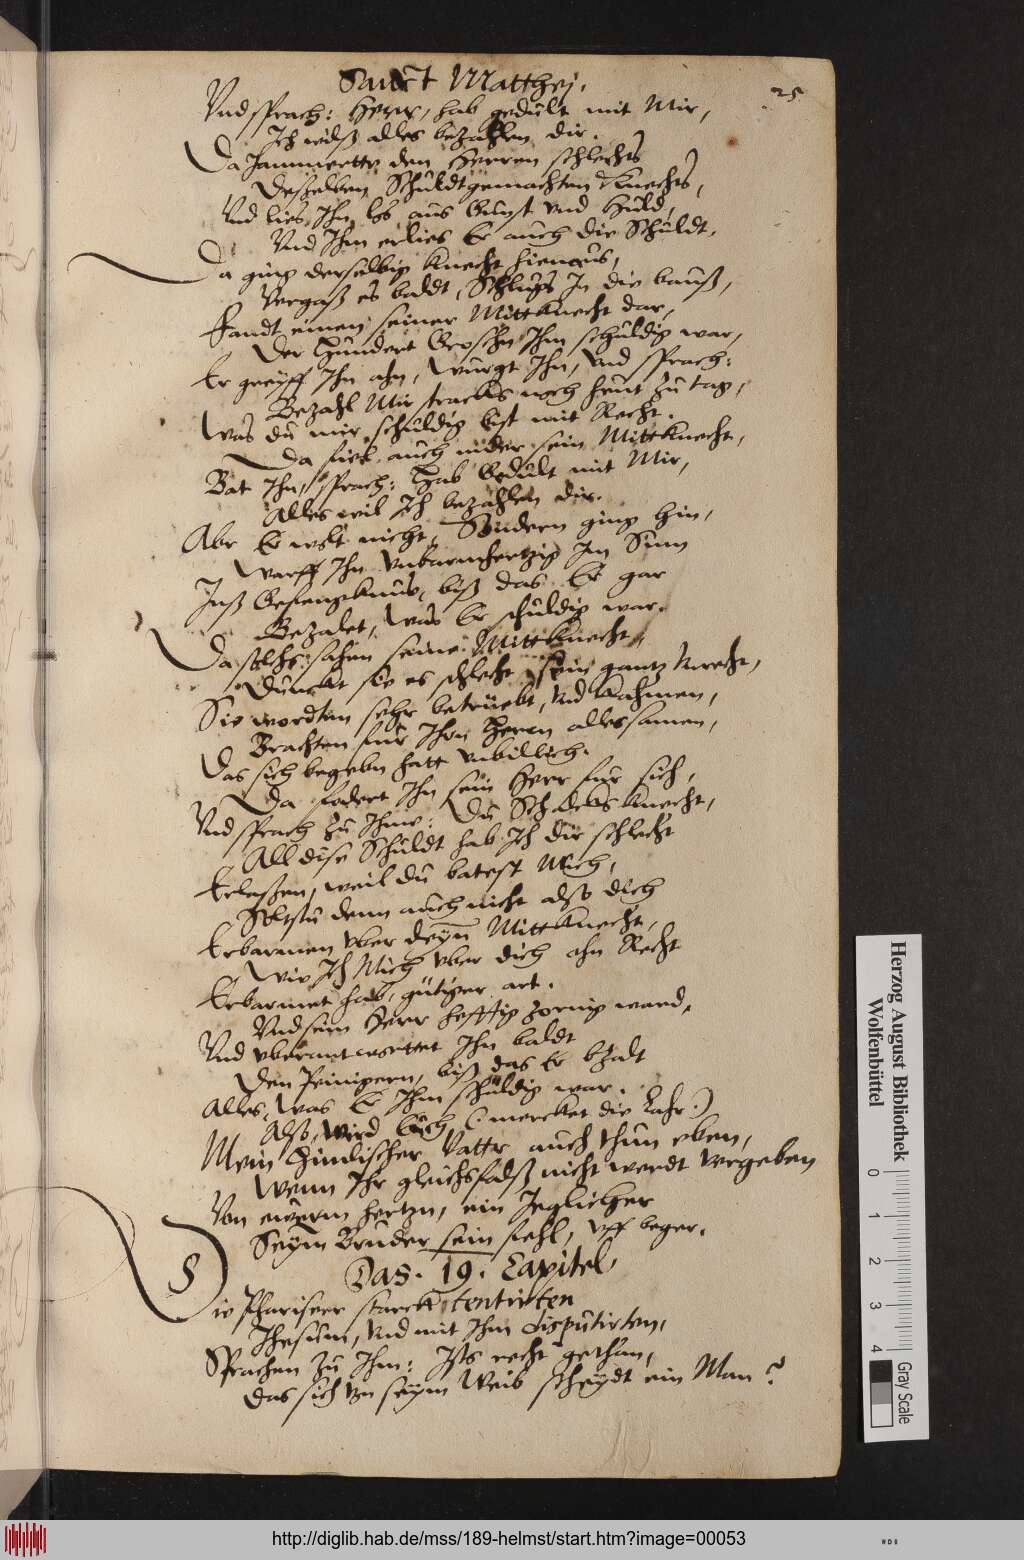 Sanct Matthej.
25
Vnd sprach: Herr, hab gedult mit Mir,
Ich will alles bezahlen dir.
Da Jammertte den Herren schlechts
Desselben Schuldtgemachten Knechts,
Vnd lies Ihn los aus Gunst vnd Huld,
Vnd Ihm erlies Er auch die Schuldt.
Da ging derselbig Knecht hienaus,
Vergaß es baldt, Schlugs In die bauß,
Fandt einen seiner Mittknecht dar,
Der Hundert Groschn Ihm schuldig war,
Er greyff Ihn ahn, Würgt Ihn, vnd sprach:
Bezahl Mir stracks noch heut zu tag,
Was du mir schuldig bist mit Recht.
Da fiel auch nider sein Mittknecht,
Bat Ihn, sprach: Hab Gedult mit Mir,
Alles wil Ich bezahlen dir.
Abr Er wolt nicht, Sondern ging hin,
Warff Ihn vnbarmhertzig Im Sinn
Inß Gefengknus, biß das Er gar
Bezalet, Was Er schuldig war.
Da solchs sahen seine Mittknecht,
Dunckt sie es schlecht sein gantz Vnrecht,
Sie wordten sehr betruebt, Vnd kahmen,
Brachten für Ihrn Herrn alles samen,
Das sich begebn hatt vnbillich.
Da fodert Ihn sein Herr für sich,
Vnd sprach zu Ihme: Du Schalcks Knecht,
All dise Schuldt hab Ich dir schlecht
Erlaßen, weil du batest Mich,
Soltstu denn auch nicht alß dich
Erbarmen vber deyn Mittknecht,
Wie Ich Mich vber dich ahn Recht
Erbarmet hab, gütiger art.
Vnd sein Herr hefftig zornig ward,
Vnd vberantworttet Ihn baldt
Den Peinigern, biß das Er bzalt
Alles, Was Er Ihm schuldig war.
Alß wird Euch (mercket die Lahr)
Mein Himlischer Vattr auch thun eben,
Wenn Ihr gleichsfalß nicht werdt vergeben
Von ewerm hertzn, ein Jeglicher
Seym Bruder sein fehl, vff beger.
Das. 19. Capitel.
Die Phariseer starck tentirten
Jhesum, vnd mit Ihm disputirten,
Sprachen zu Ihm: Ists recht gethan,
Das sich von seym Weib scheydt ein Man?
Herzog August Bibliothek
Wolfenbüttel
0 1 2 3 4
Gray Scale
http://diglib.hab.de/mss/189-helmst/start.htm?image=00053